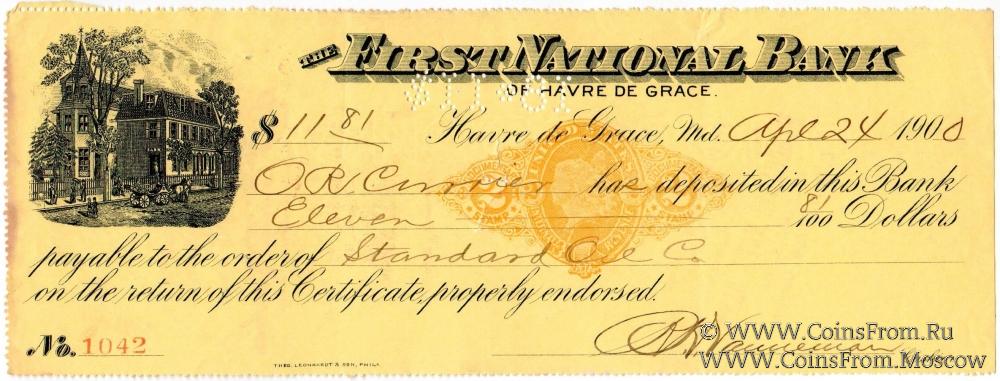 THE FIRST NATIONAL BANK
OF HAVRE DE GRACE.
$11.81
$ 11 81 Havre de Grace, Md. Apl 24 1900
O.R. Currier has deposited in this Bank
Eleven 81/100 Dollars
payable to the order of Standard Oil Co
on the return of this Certificate, properly endorsed.
No. 1042
THEO. LEONHARDT & SON, PHILA.
© www.CoinsFrom.Ru
© www.CoinsFrom.Moscow